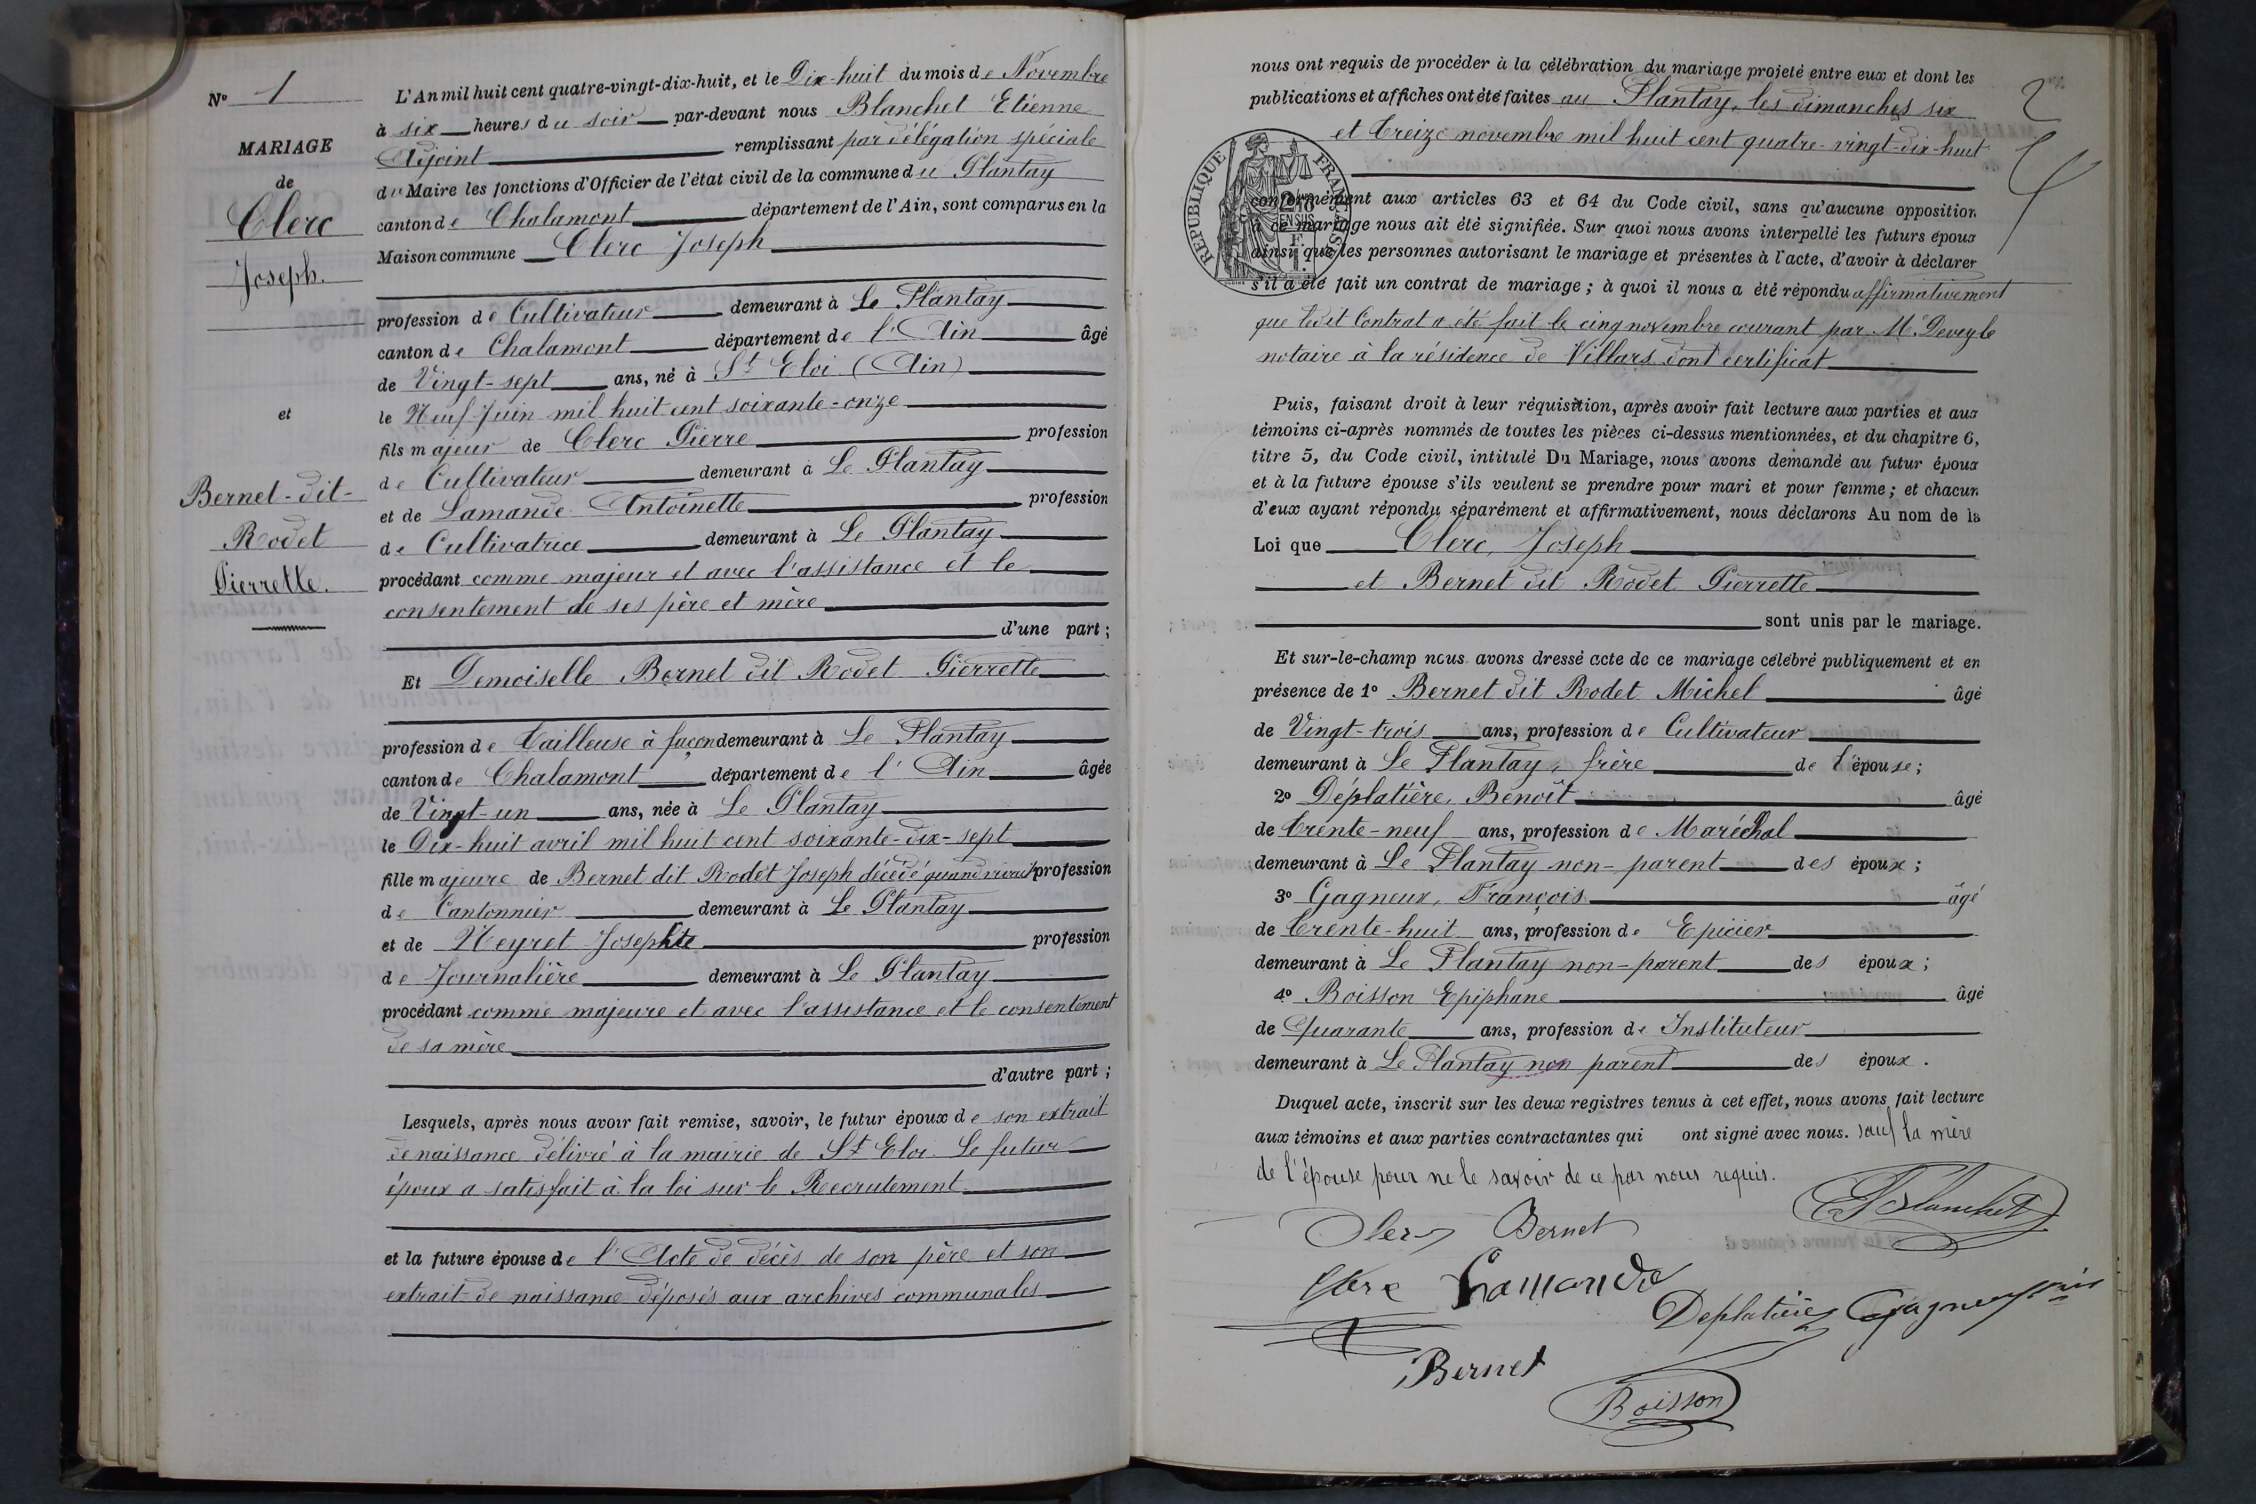 N° 1
MARIAGE
de
Clerc
Joseph.
et
Bernet-dit-
Rodet
Pierrette.
L'An mil huit cent quatre-vingt-dix-huit, et le Dix-huit du mois de Novembre
à six heures du soir par-devant nous Blanchet Etienne
Adjoint remplissant par délégation spéciale
du Maire les fonctions d'Officier de l'état civil de la commune du Plantay
canton de Chalamont département de l'Ain, sont comparus en la
Maison commune Clerc Joseph
profession de Cultivateur demeurant à Le Plantay
canton de Chalamont département de l'Ain âgé
de Vingt-sept ans, né à St Eloi (Ain)
le Neuf Juin mil huit cent soixante-onze
fils majeur de Clerc Pierre profession
de Cultivateur demeurant à Le Plantay
et de Lamande Antoinette profession
de Cultivatrice demeurant à Le Plantay
procédant comme majeur et avec l'assistance et le
consentement de ses père et mère
d'une part;
Et Demoiselle Bernet dit Rodet Pierrette
profession de Tailleuse à façon demeurant à Le Plantay
canton de Chalamont département de l'Ain âgée
de Vingt-un ans, née à Le Plantay
le Dix-huit avril mil huit cent soixante-dix-sept
fille majeure de Bernet dit Rodet Joseph décédé quand vivait profession
de Cantonnier demeurant à Le Plantay
et de Neyret Josephte profession
de Journalière demeurant à Le Plantay
procédant comme majeure et avec l'assistance et le consentement
de sa mère
d'autre part;
Lesquels, après nous avoir fait remise, savoir, le futur époux de son extrait
de naissance délivré à la mairie de St Eloi. Le futur
époux a satisfait à la loi sur le Recrutement
et la future épouse de l'Acte de décès de son père et son
extrait de naissance déposés aux archives communales
2
nous ont requis de procéder à la célébration du mariage projeté entre eux et dont les
publications et affiches ont été faites au Plantay, les dimanches six
et treize novembre mil huit cent quatre-vingt-dix-huit
RÉPUBLIQUE FRANÇAISE
conformément aux articles 63 et 64 du Code civil, sans qu'aucune opposition
à ce mariage nous ait été signifiée. Sur quoi nous avons interpellé les futurs époux
ainsi que les personnes autorisant le mariage et présentes à l'acte, d'avoir à déclarer
s'il a été fait un contrat de mariage; à quoi il nous a été répondu affirmativement
que ledit Contrat a été fait le cinq novembre courant par Me Deveyle
notaire à la résidence de Villars dont certificat
Puis, faisant droit à leur réquisition, après avoir fait lecture aux parties et aux
témoins ci-après nommés de toutes les pièces ci-dessus mentionnées, et du chapitre 6,
titre 5, du Code civil, intitulé Du Mariage, nous avons demandé au futur époux
et à la future épouse s'ils veulent se prendre pour mari et pour femme; et chacun
d'eux ayant répondu séparément et affirmativement, nous déclarons Au nom de la
Loi que Clerc, Joseph
et Bernet dit Rodet Pierrette
sont unis par le mariage.
Et sur-le-champ nous avons dressé acte de ce mariage célébré publiquement et en
présence de 1° Bernet dit Rodet Michel âgé
de Vingt-trois ans, profession de Cultivateur
demeurant à Le Plantay, frère de l'épouse;
2° Déplatière, Benoît âgé
de trente-neuf ans, profession de Maréchal
demeurant à Le Plantay non-parent des époux;
3° Gagneux, François âgé
de trente-huit ans, profession de Epicier
demeurant à Le Plantay non-parent des époux;
4° Boisson Epiphane âgé
de Quarante ans, profession de Instituteur
demeurant à Le Plantay non parent des époux.
Duquel acte, inscrit sur les deux registres tenus à cet effet, nous avons fait lecture
aux témoins et aux parties contractantes qui ont signé avec nous. sauf la mère
de l'épouse pour ne le savoir de ce par nous requis.
Clerc Bernet
E Blanchet
Clerc Lamande
Deplatière Gagneux
Bernet
Boisson